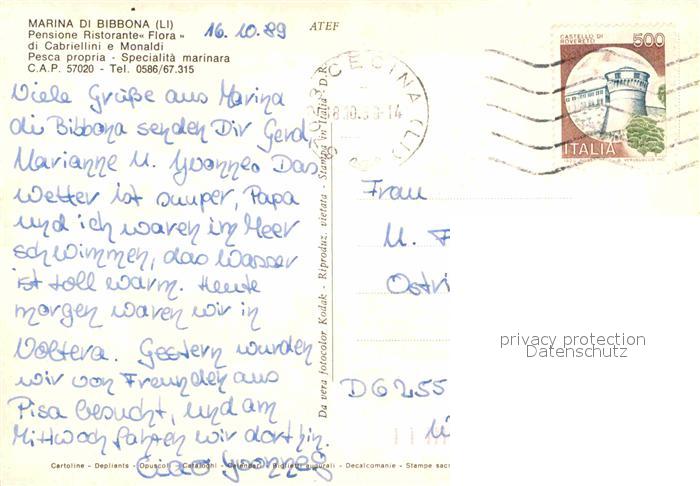 MARINA DI BIBBONA (LI)
Pensione Ristorante « Flora »
di Cabriellini e Monaldi
Pesca propria - Specialità marinara
C.A.P. 57020 - Tel. 0586/67.315
16.10.89
ATEF
Viele Grüße aus Marina
di Bibbona senden Dir Gerd,
Marianne u. Yvonne. Das
Wetter ist super, Papa
und ich waren im Meer
schwimmen, das Wasser
ist toll warm. Heute
morgen waren wir in
Voltera. Gestern wurden
wir von Freunden aus
Pisa besucht, und am
Mittwoch fahren wir dorthin.
Ciao Yvonne
Da vera fotocolor Kodak - Riproduz. vietata - Stampa in Italia - D.R.
CECINA (LI)
CASTELLO DI
ROVERETO
500
ITALIA
Frau
U. F
Ostri
D 6255
privacy protection
Datenschutz
Cartoline - Depliants - Opuscoli - Cataloghi - Calendari - Biglietti augurali - Decalcomanie - Stampe sacr